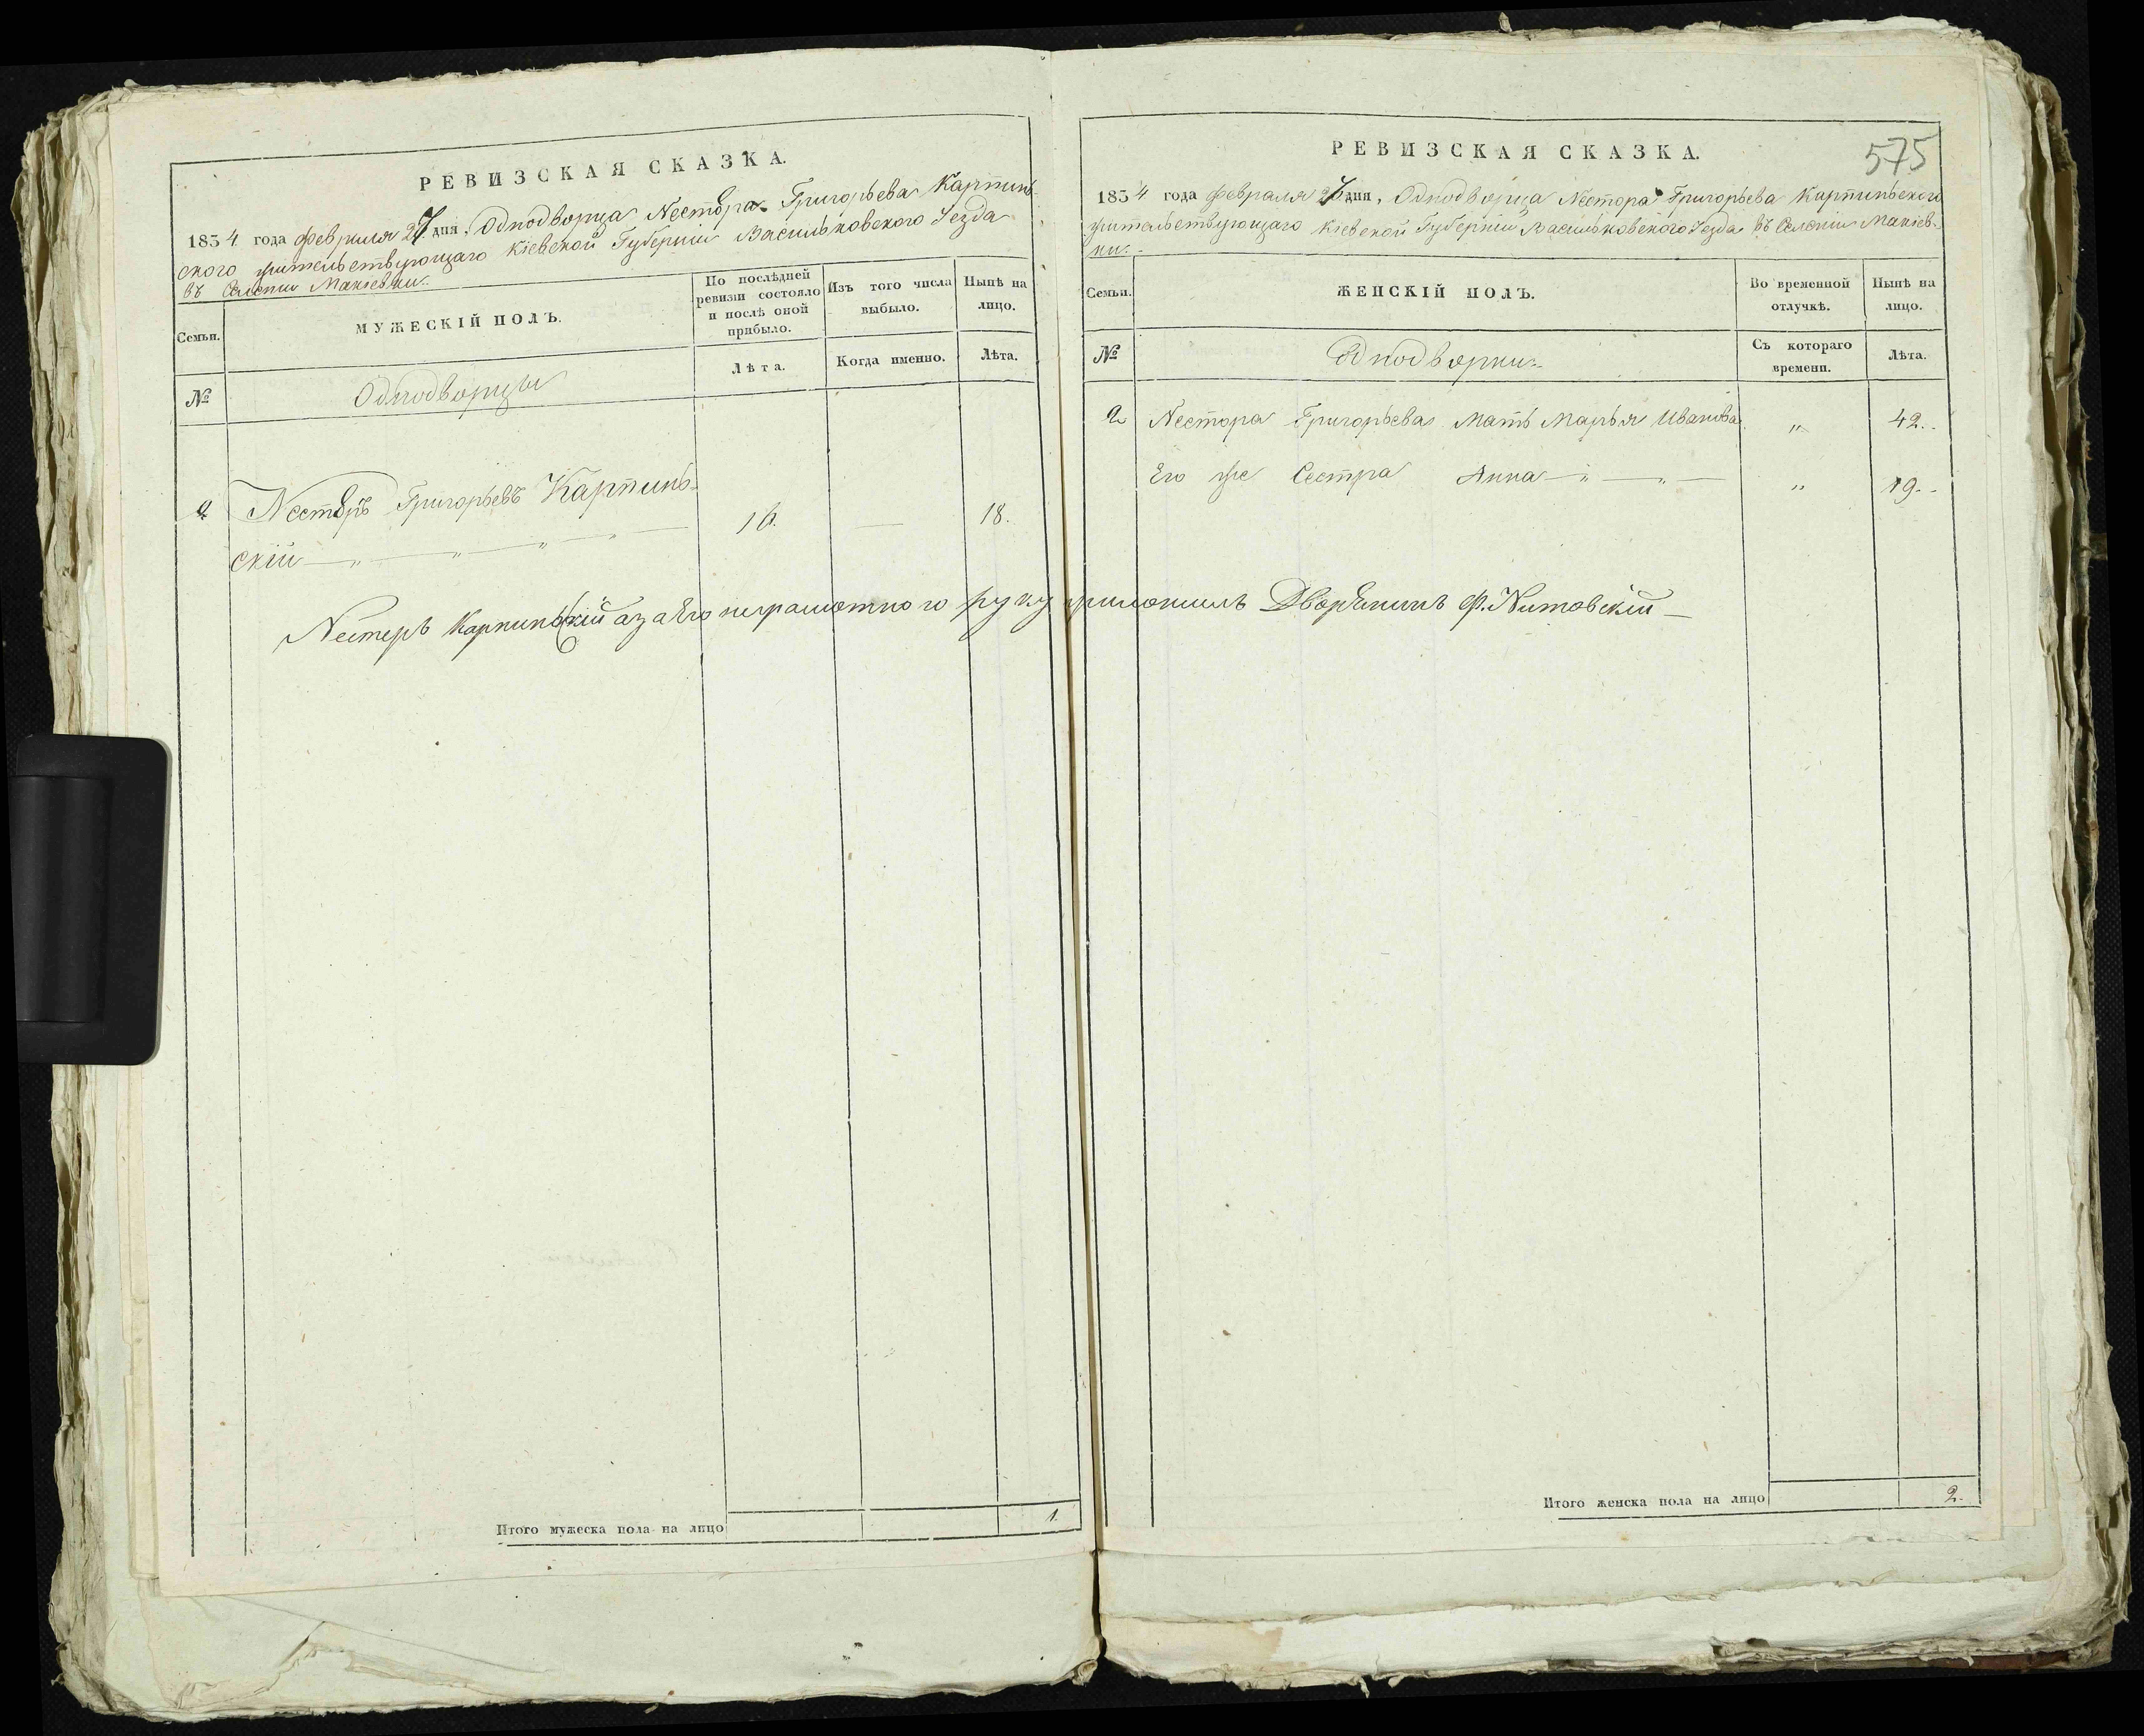 РЕВИЗСКАЯ СКАЗКА.
1834 года февраля 27 дня, Однодворца Нестора Григорьева Карпинь-
ского жительствующаго Кіевской Губерніи Васильковского Уезда
въ Селеніи Макіевки.
Семьи.
МУЖЕСКІЙ ПОЛЪ.
По послѣдней ревизіи состояло и послѣ оной прибыло.
Изъ того числа выбыло.
Нынѣ на лицо.
№
Однодворцы
Лѣта.
Когда именно.
Лѣта.
2 Несторъ Григорьевъ Карпинь-
скій 16. — 18.
Нестеръ Карпиньскій а за Его неграмотного руку приложилъ Дворянинъ Ф. Житовскій
Итого мужеска пола на лицо 1.
575
РЕВИЗСКАЯ СКАЗКА.
1834 года февраля 27 дня, Однодворца Нестора Григорьева Карпиньского
жительствующаго Кіевской Губерніи Васильковского Уезда въ Селеніи Макіев-
ки.
Семьи.
ЖЕНСКІЙ ПОЛЪ.
Во временной отлучкѣ.
Нынѣ на лицо.
№
Однодворки
Съ котораго времени.
Лѣта.
2 Нестора Григорьева Мать Марья Иванова „ 42.
Его же Сестра Анна „ 19.
Итого женска пола на лицо 2.